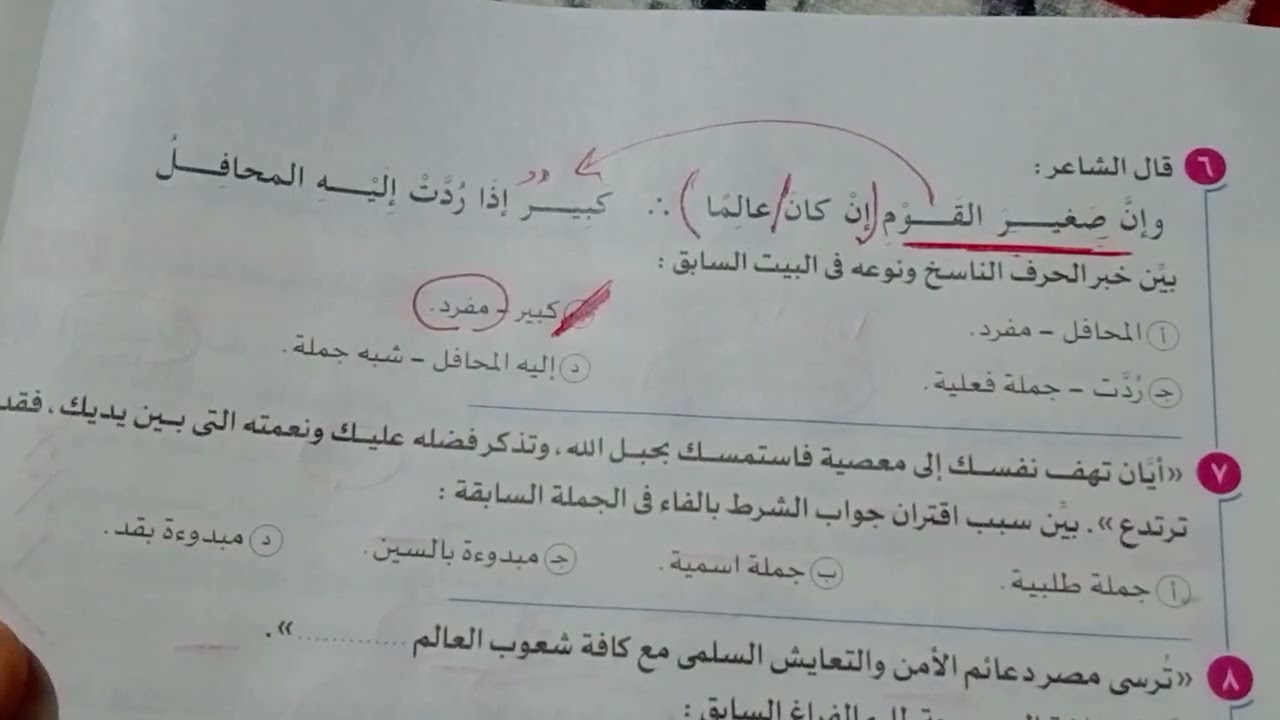 ٦ قال الشاعر :
وإنَّ صَغيرَ القَوْمِ إنْ كانَ عالِمًا ∴ كَبِيرٌ إذَا رُدَّتْ إِلَيْهِ المحافِلُ
بيَّن خبر الحرف الناسخ ونوعه فى البيت السابق :
أ المحافل – مفرد. كبير – مفرد.
جـ رُدَّت – جملة فعلية. د إليه المحافل – شبه جملة.
٧ «أيَّان تهف نفسك إلى معصية فاستمسك بحبل الله، وتذكر فضله عليك ونعمته التى بين يديك، فقد
ترتدع». بيَّن سبب اقتران جواب الشرط بالفاء فى الجملة السابقة :
أ جملة طلبية. ب جملة اسمية. جـ مبدوءة بالسين. د مبدوءة بقد.
٨ «تُرسى مصر دعائم الأمن والتعايش السلمى مع كافة شعوب العالم ............».
الفراغ السابق :